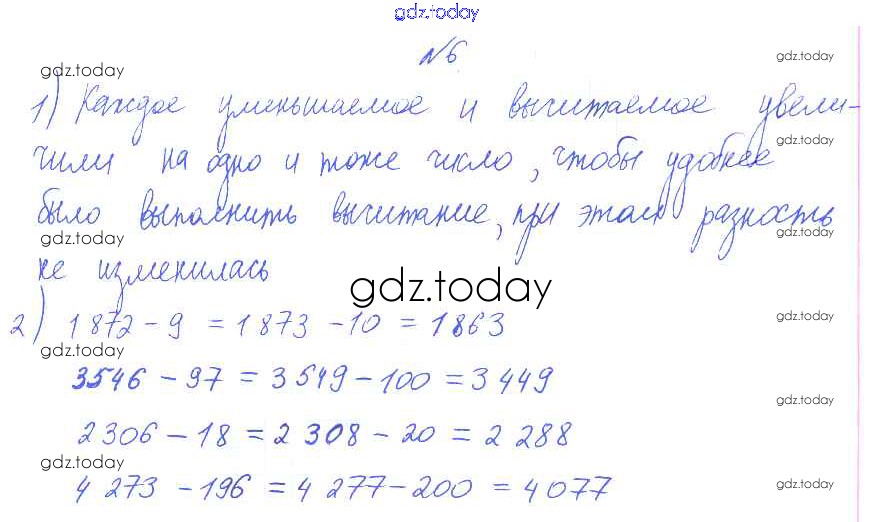 gdz.today
№6
gdz.today gdz.today
1) Каждое уменьшаемое и вычитаемое увели-
gdz.today
чили на одно и тоже число, чтобы удобнее
было выполнить вычитание, при этом разность
gdz.today gdz.today
не изменилась
gdz.today
2) 1872 - 9 = 1873 - 10 = 1863
gdz.today
gdz.today
3546 - 97 = 3549 - 100 = 3449
gdz.today
2306 - 18 = 2308 - 20 = 2288
gdz.today
4273 - 196 = 4277 - 200 = 4077
gdz.today